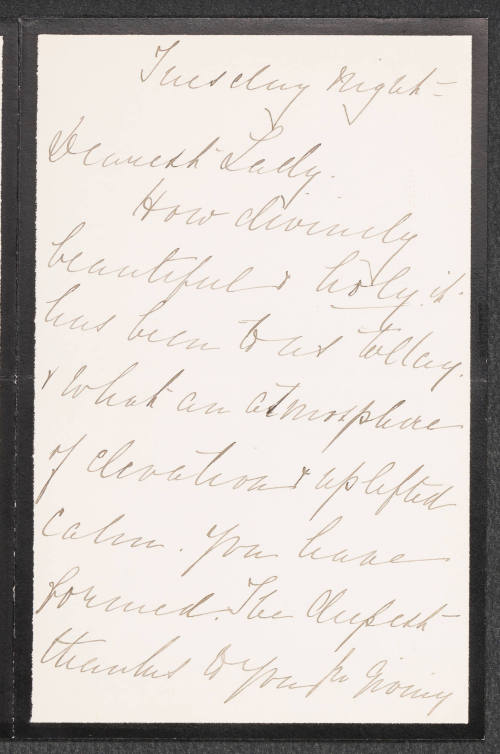 Tuesday Night -
Dearest Lady.
How divinely
beautiful & holy it
has been to us to day.
& what an atmosphere
of elevation & uplifted
calm. You have
formed. The deepest
thanks to you for giving